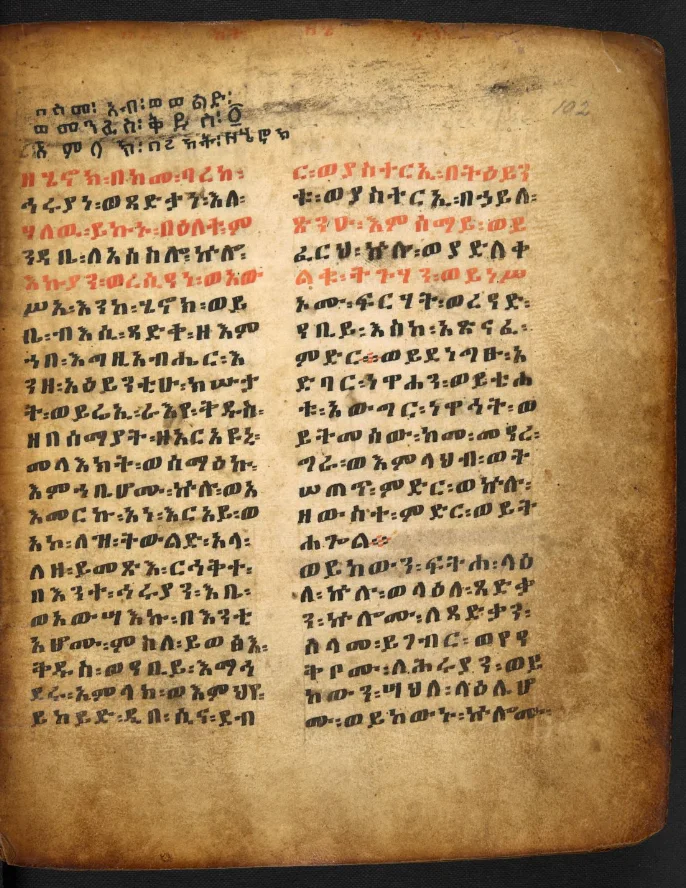 በስመ፡ አብ፡ወወልድ፡
ወመንፈስ፡ቅዱስ፡፩
አምላክ፡በረከት፡ዘሄኖክ
ዘሄኖክ፡በከመ፡ባረከ፡
ኅሩያነ፡ወጻድቃነ፡እለ፡
ሃለዉ፡ይኩኑ፡በዕለተ፡ም
ንዳቤ፡ለአሰስሎ፡ኵሎ፡
እኩያን፡ወረሲዓን፡ወአው
ሥአ፡እንከ፡ሄኖክ፡ወይ
ቤ፡ብእሲ፡ጻድቅ፡ዘእም
ኀበ፡እግዚአብሔር፡እ
ንዘ፡አዕይንቲሁ፡ክሡታ
ት፡ወይሬኢ፡ራእየ፡ቅዱስ፡
ዘበሰማያት፡ዘአርአዩኒ፡
መላእክት፡ወሰማዕኩ፡
እምኀቤሆሙ፡ኵሎ፡ወአ
እመርኩ፡አነ፡እርአይ፡ወ
አኮ፡ለዝ፡ትውልድ፡አላ፡
ለዘ፡ይመጽእ፡ርኅቅተ፡
በእንተ፡ኅሩያን፡እቤ፡
ወአውሣእኩ፡በእንቲ
አሆሙ፡ምስለ፡ይወፅእ፡
ቅዱስ፡ወዓቢይ፡እማኅ
ደሩ፡አምላክ፡ወእምህየ፡
ይከይድ፡ዲበ፡ሲና፡ደብ
ር፡ወያስተርኢ፡በትዕይን
ቱ፡ወያስተርኢ፡በኃይለ፡
ጽንዑ፡እምሰማይ፡ወይ
ፈርህ፡ኵሉ፡ወያድለቀ
ልቁ፡ትጉሃን፡ወይነሥ
ኦሙ፡ፍርሃት፡ወረዓድ፡
ዓቢይ፡እስከ፡አጽናፈ፡
ምድር፡፡ወይደነግፁ፡አ
ድባር፡ነዋኃን፡ወይቲሐ
ቱ፡አውግር፡ነዋኅት፡ወ
ይትመሰው፡ከመ፡መዓረ፡
ግራ፡ወእምላህብ፡ወት
ሠጠጥ፡ምድር፡ወኵሉ፡
ዘውስተ፡ምድር፡ወይት
ሐጐል፡፡
ወይከውን፡ፍትሐ፡ላዕ
ለ፡ኵሉ፡ወላዕለ፡ጻድቃ
ን፡ኵሎሙ፡ለጻድቃን፡
ሰላመ፡ይገብር፡ወየዓ
ቅቦሙ፡ለኅሩያን፡ወይ
ከውን፡ሣህለ፡ላዕሌሆ
ሙ፡ወይከውኑ፡ኵሎሙ፡
102